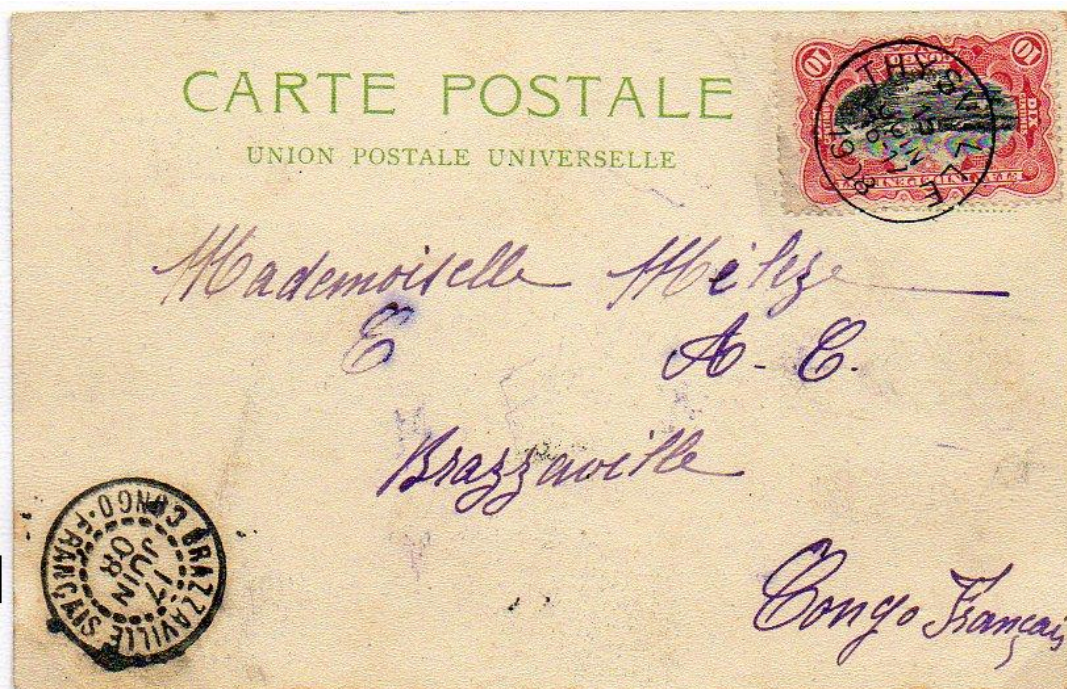 CARTE POSTALE
UNION POSTALE UNIVERSELLE
10 10
DIX
THYSVILLE
JUIN
1908
Mademoiselle
E A. C.
Brazzaville
Congo Français
BRAZZAVILLE CONGO-FRANÇAIS
17
JUIN
08